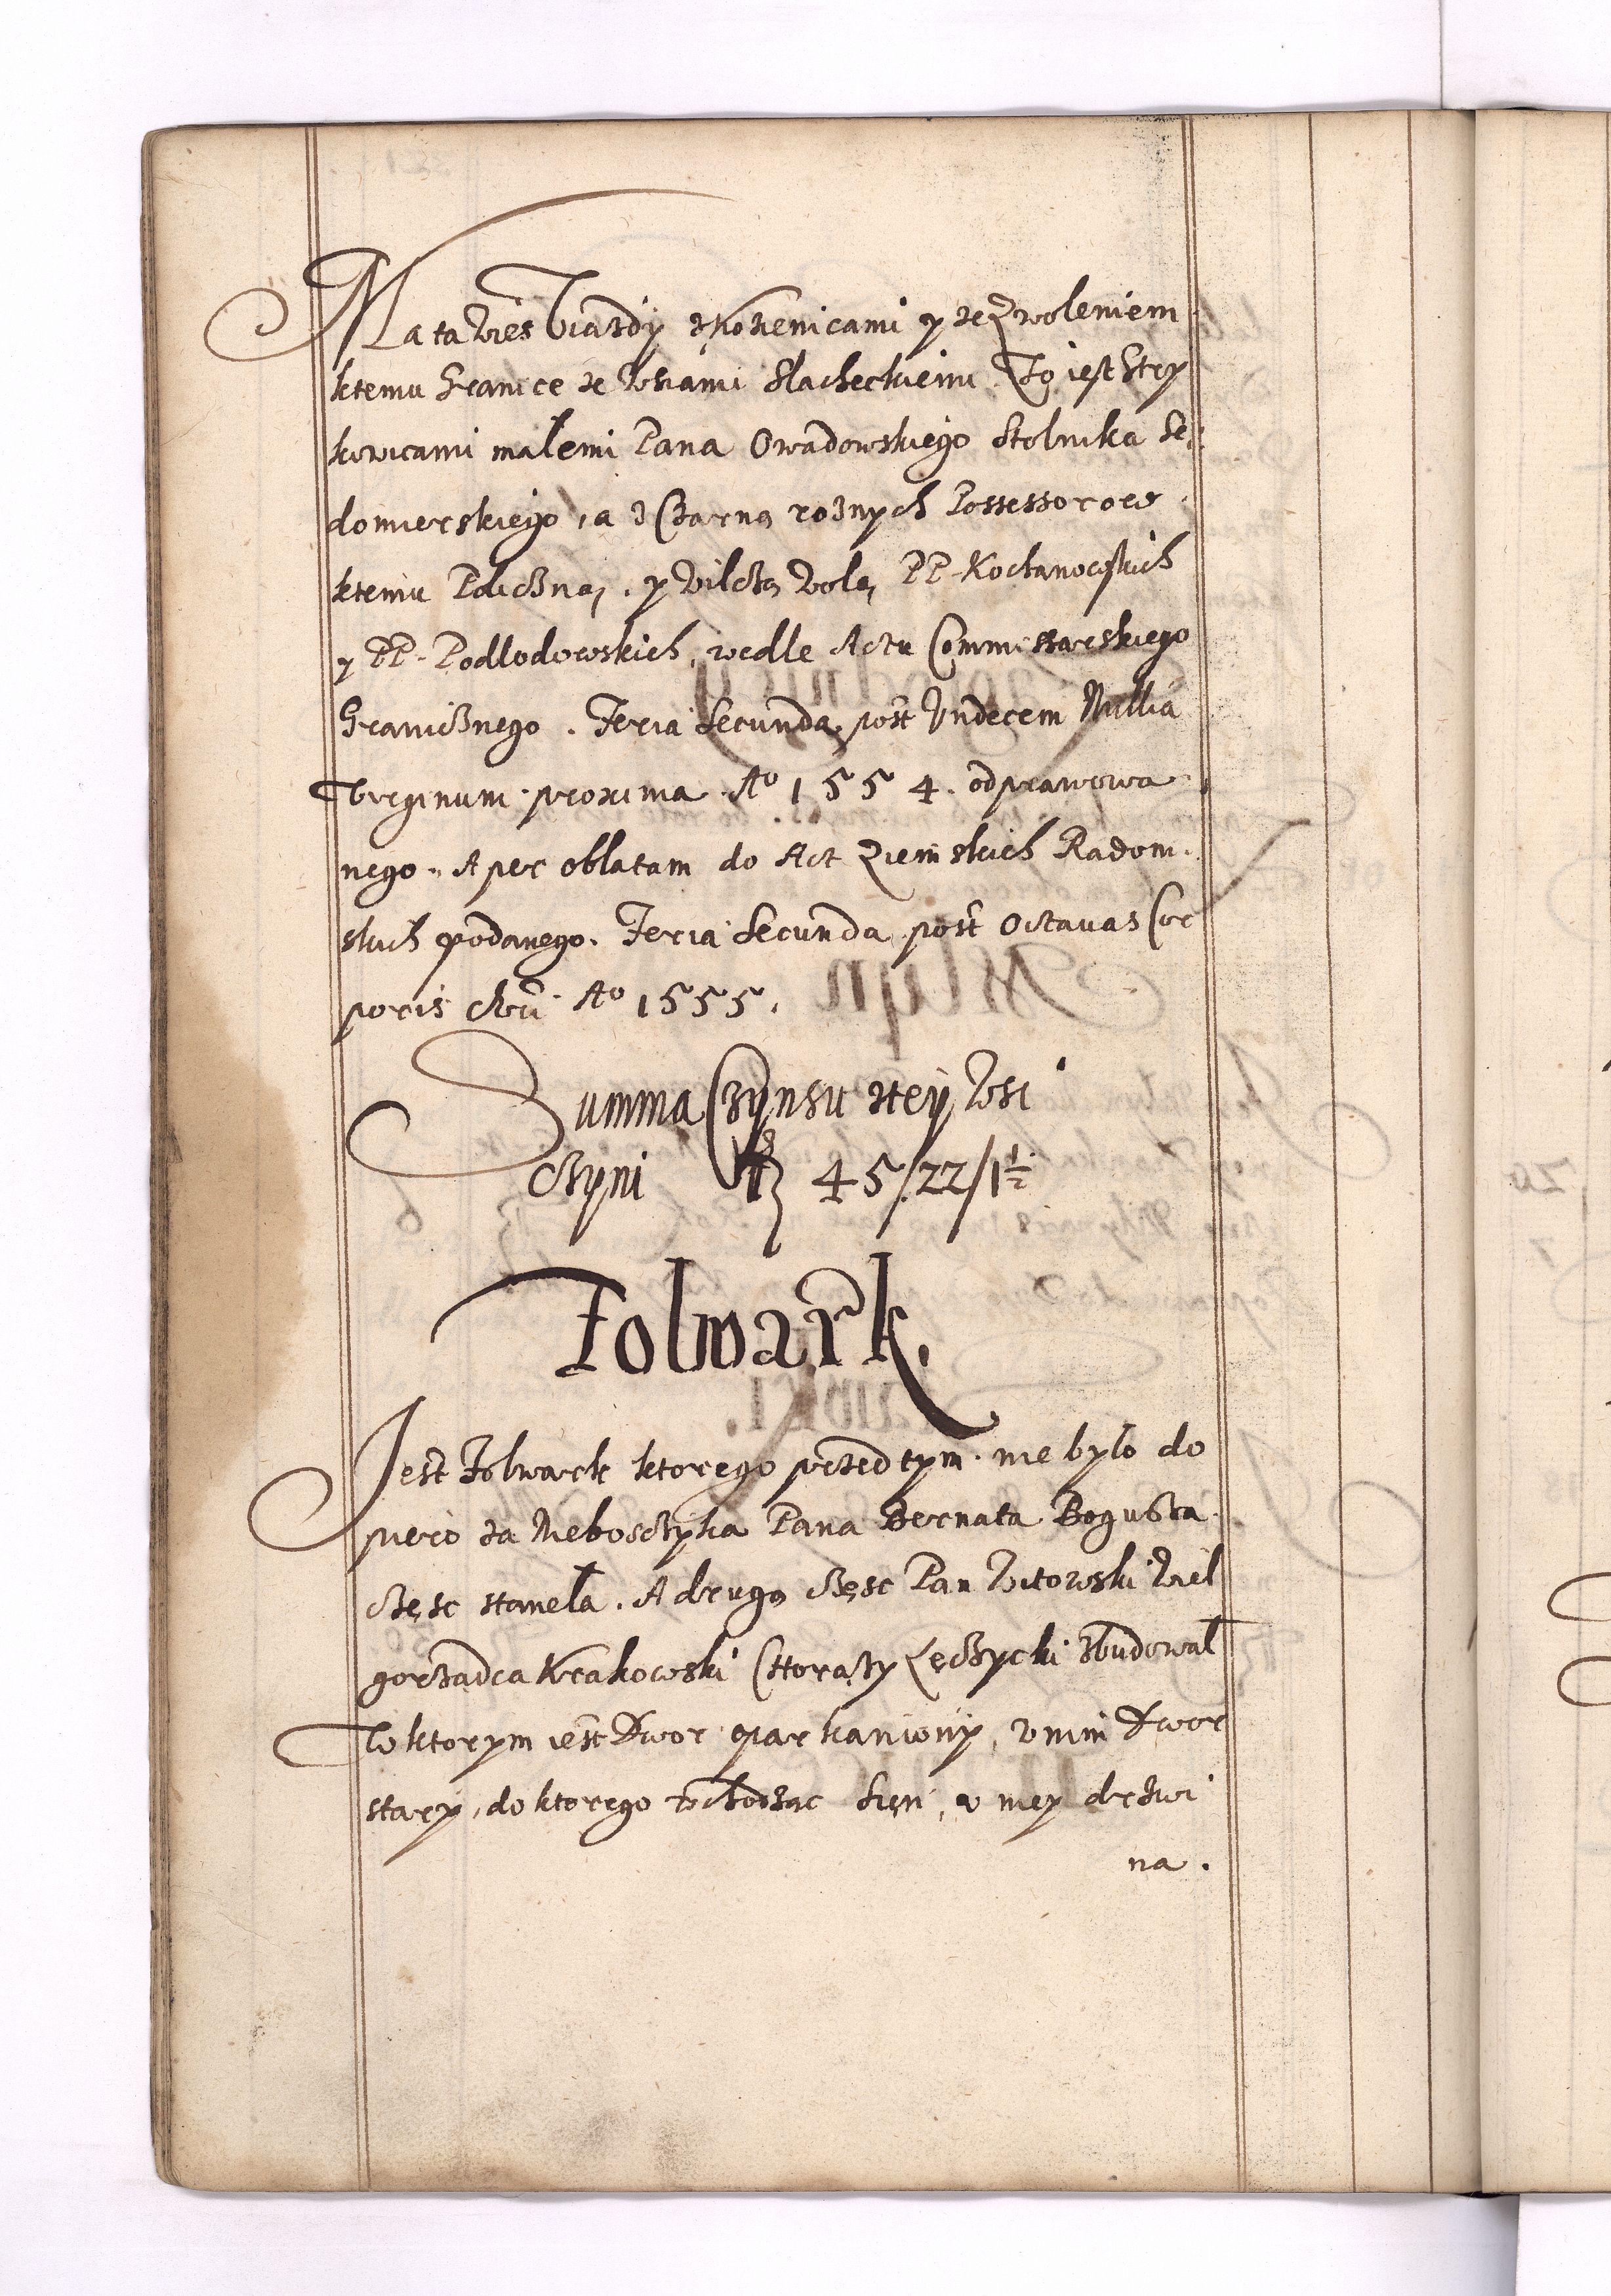 Ma ta Wies Wiazdy z Kozienicami y ze Zwoleniem
ktemu Granice ze Wsiami Slacheckiemi. To iest Stry
kowicami małemi Pana Owadowskiego Stolnika Se
domierskiego, a z Czarną roznych Possessorow
ktemu Policzną, y Wilczą Wolą PP. Kochanowskich
y PP. Podlodowskich, wedle Actu Commissarskiego
Granicznego. Feria Secunda post Undecem Millia
Virginum proxima Aº 1554. odprawowa
nego. A per oblatam do Act Ziemskich Radom
skich podanego. Feria Secunda post Octauas Cor
poris Chri Aº 1555.
Summa Czynsu ztey Wsi
czyni 45/22/1½
Folwark.
Jest Folwark ktorego przed tym nie bylo do
piero za Nieboszczyka Pana Bernata Bogusza
częsc stanela. A drugą częsc Pan Witowski Wiel
gorządca Krakowski Chorąży Łęczycki zbudowal
W ktorym iest Dwor oparkaniony, w nim Dwor
stary, do ktorego wchodząc Sien, v niey drzwi
na.